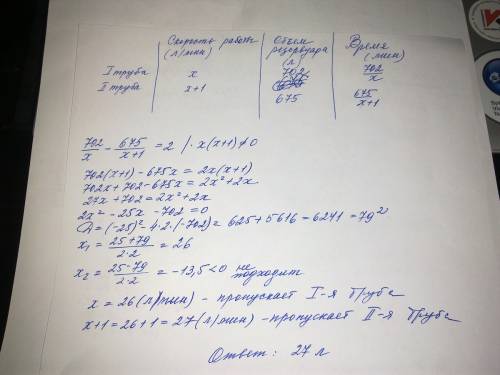 Скорость работы Объём Время
(л/мин) резервуара (мин)
(л)
I труба x 702 702/x
II труба x+1 675 675/x+1
702/x - 675/x+1 = 2 /· x(x+1)≠0
702(x+1) - 675x = 2x(x+1)
702x + 702 - 675x = 2x² + 2x
27x + 702 = 2x² + 2x
2x² - 25x - 702 = 0
D = (-25)² - 4·2·(-702) = 625 + 5616 = 6241 = 79²
x₁ = 25+79/2·2 = 26
x₂ = 25-79/2·2 = -13,5 < 0 не подходит
x = 26 (л/мин) - пропускает I-я труба
x+1 = 26+1 = 27 (л/мин) - пропускает II-я труба
Ответ: 27 л